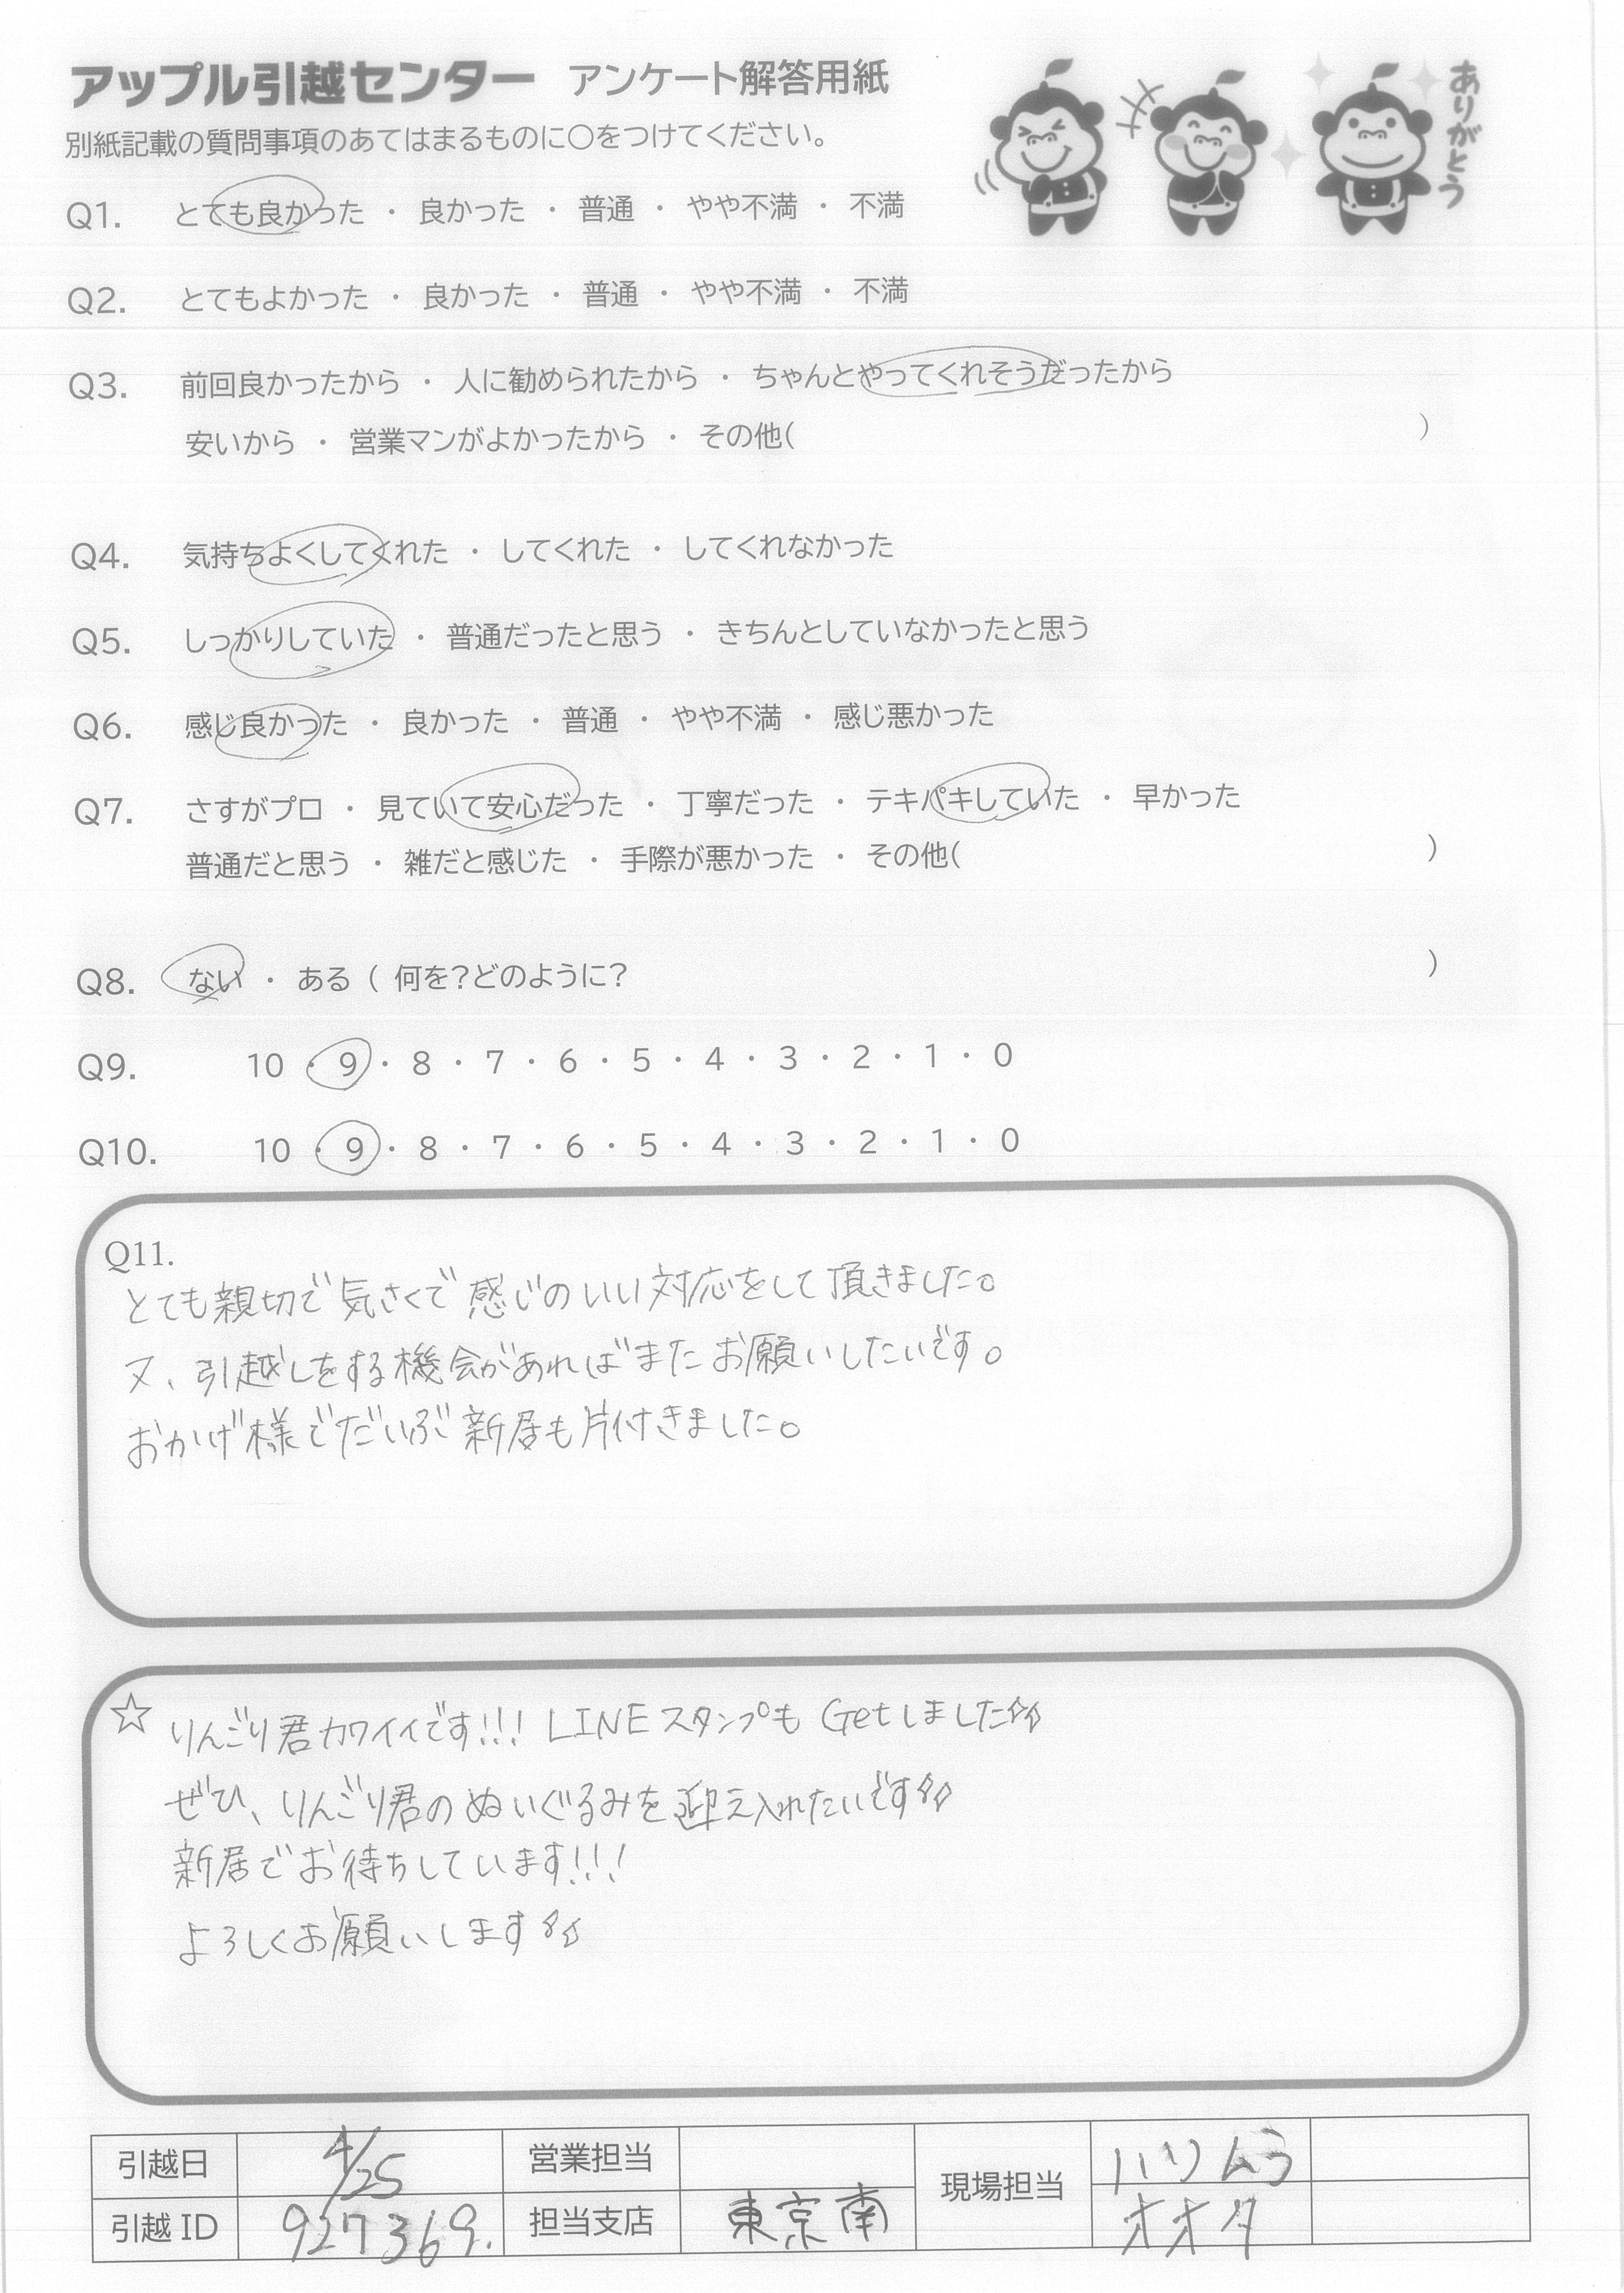 アップル引越センター アンケート解答用紙
ありがとう
別紙記載の質問事項のあてはまるものに〇をつけてください。
Q1. とても良かった ・ 良かった ・ 普通 ・ やや不満 ・ 不満
Q2. とてもよかった ・ 良かった ・ 普通 ・ やや不満 ・ 不満
Q3. 前回良かったから ・ 人に勧められたから ・ ちゃんとやってくれそうだったから
安いから ・ 営業マンがよかったから ・ その他( )
Q4. 気持ちよくしてくれた ・ してくれた ・ してくれなかった
Q5. しっかりしていた ・ 普通だったと思う ・ きちんとしていなかったと思う
Q6. 感じ良かった ・ 良かった ・ 普通 ・ やや不満 ・ 感じ悪かった
Q7. さすがプロ ・ 見ていて安心だった ・ 丁寧だった ・ テキパキしていた ・ 早かった
普通だと思う ・ 雑だと感じた ・ 手際が悪かった ・ その他( )
Q8. ない ・ ある ( 何を?どのように? )
Q9. 10 ・ 9 ・ 8 ・ 7 ・ 6 ・ 5 ・ 4 ・ 3 ・ 2 ・ 1 ・ 0
Q10. 10 ・ 9 ・ 8 ・ 7 ・ 6 ・ 5 ・ 4 ・ 3 ・ 2 ・ 1 ・ 0
Q11.
とても親切で気さくで感じのいい対応をして頂きました。
又、引越しをする機会があればまたお願いしたいです。
おかげ様でだいぶ新居も片付きました。
☆ りんごり君カワイイです!!! LINEスタンプも Getしました
ぜひ、りんごり君のぬいぐるみを迎え入れたいです
新居でお待ちしています!!!
よろしくお願いします
引越日 4/25 営業担当 現場担当
引越 ID 927369. 担当支店 東京南 オオタ